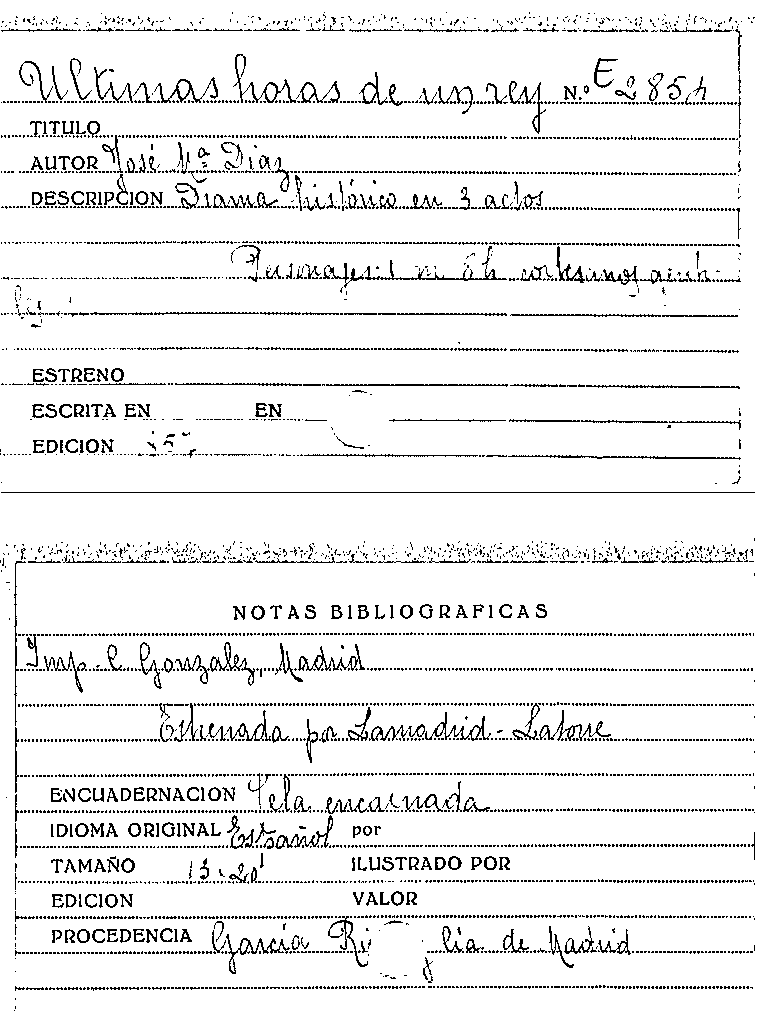 Ultimas horas de un rey N.º E 2854
TITULO
AUTOR José Mª Diaz
DESCRIPCION Drama histórico en 3 actos
Personajes: 1 m 8h cortesanos
ESTRENO
ESCRITA EN EN
EDICION
NOTAS BIBLIOGRAFICAS
Imp. C Gonzalez, Madrid
Estrenada por Lamadrid - Latorre
ENCUADERNACION Tela encarnada
IDIOMA ORIGINAL Español por
TAMAÑO 13.20 ILUSTRADO POR
EDICION VALOR
PROCEDENCIA García de Madrid